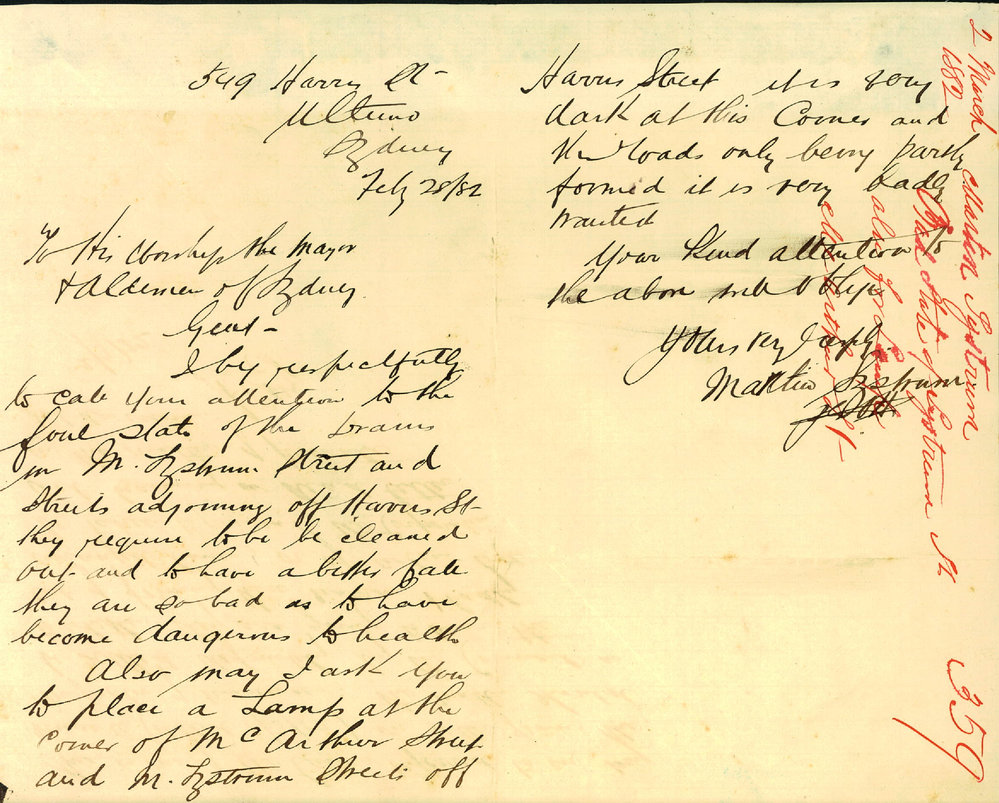 549 Harris St
Ultimo
Sydney
Feby 28/82
To His Worship the Mayor
& Aldermen of Sydney
Gent -
I beg respectfully
to call your attention to the
foul state of the Drains
in M. Systrum Street and
Streets adjoining off Harris St
they require to be be cleaned
out and to have a better fall
they are so bad as to have
become dangerous to health
Also may I ask you
to place a Lamp at the
corner of Mc Arthur Street
and M. Systrum Streets off
Harris Street it is very
dark at this Corner and
the roads only being partly
formed it is very badly
wanted
Your kind attention to
the above will oblige
Yours very
Martin Systrum
2 March Martin Systrum
1882
Bad state of Systrum St
also for a Lamp
359